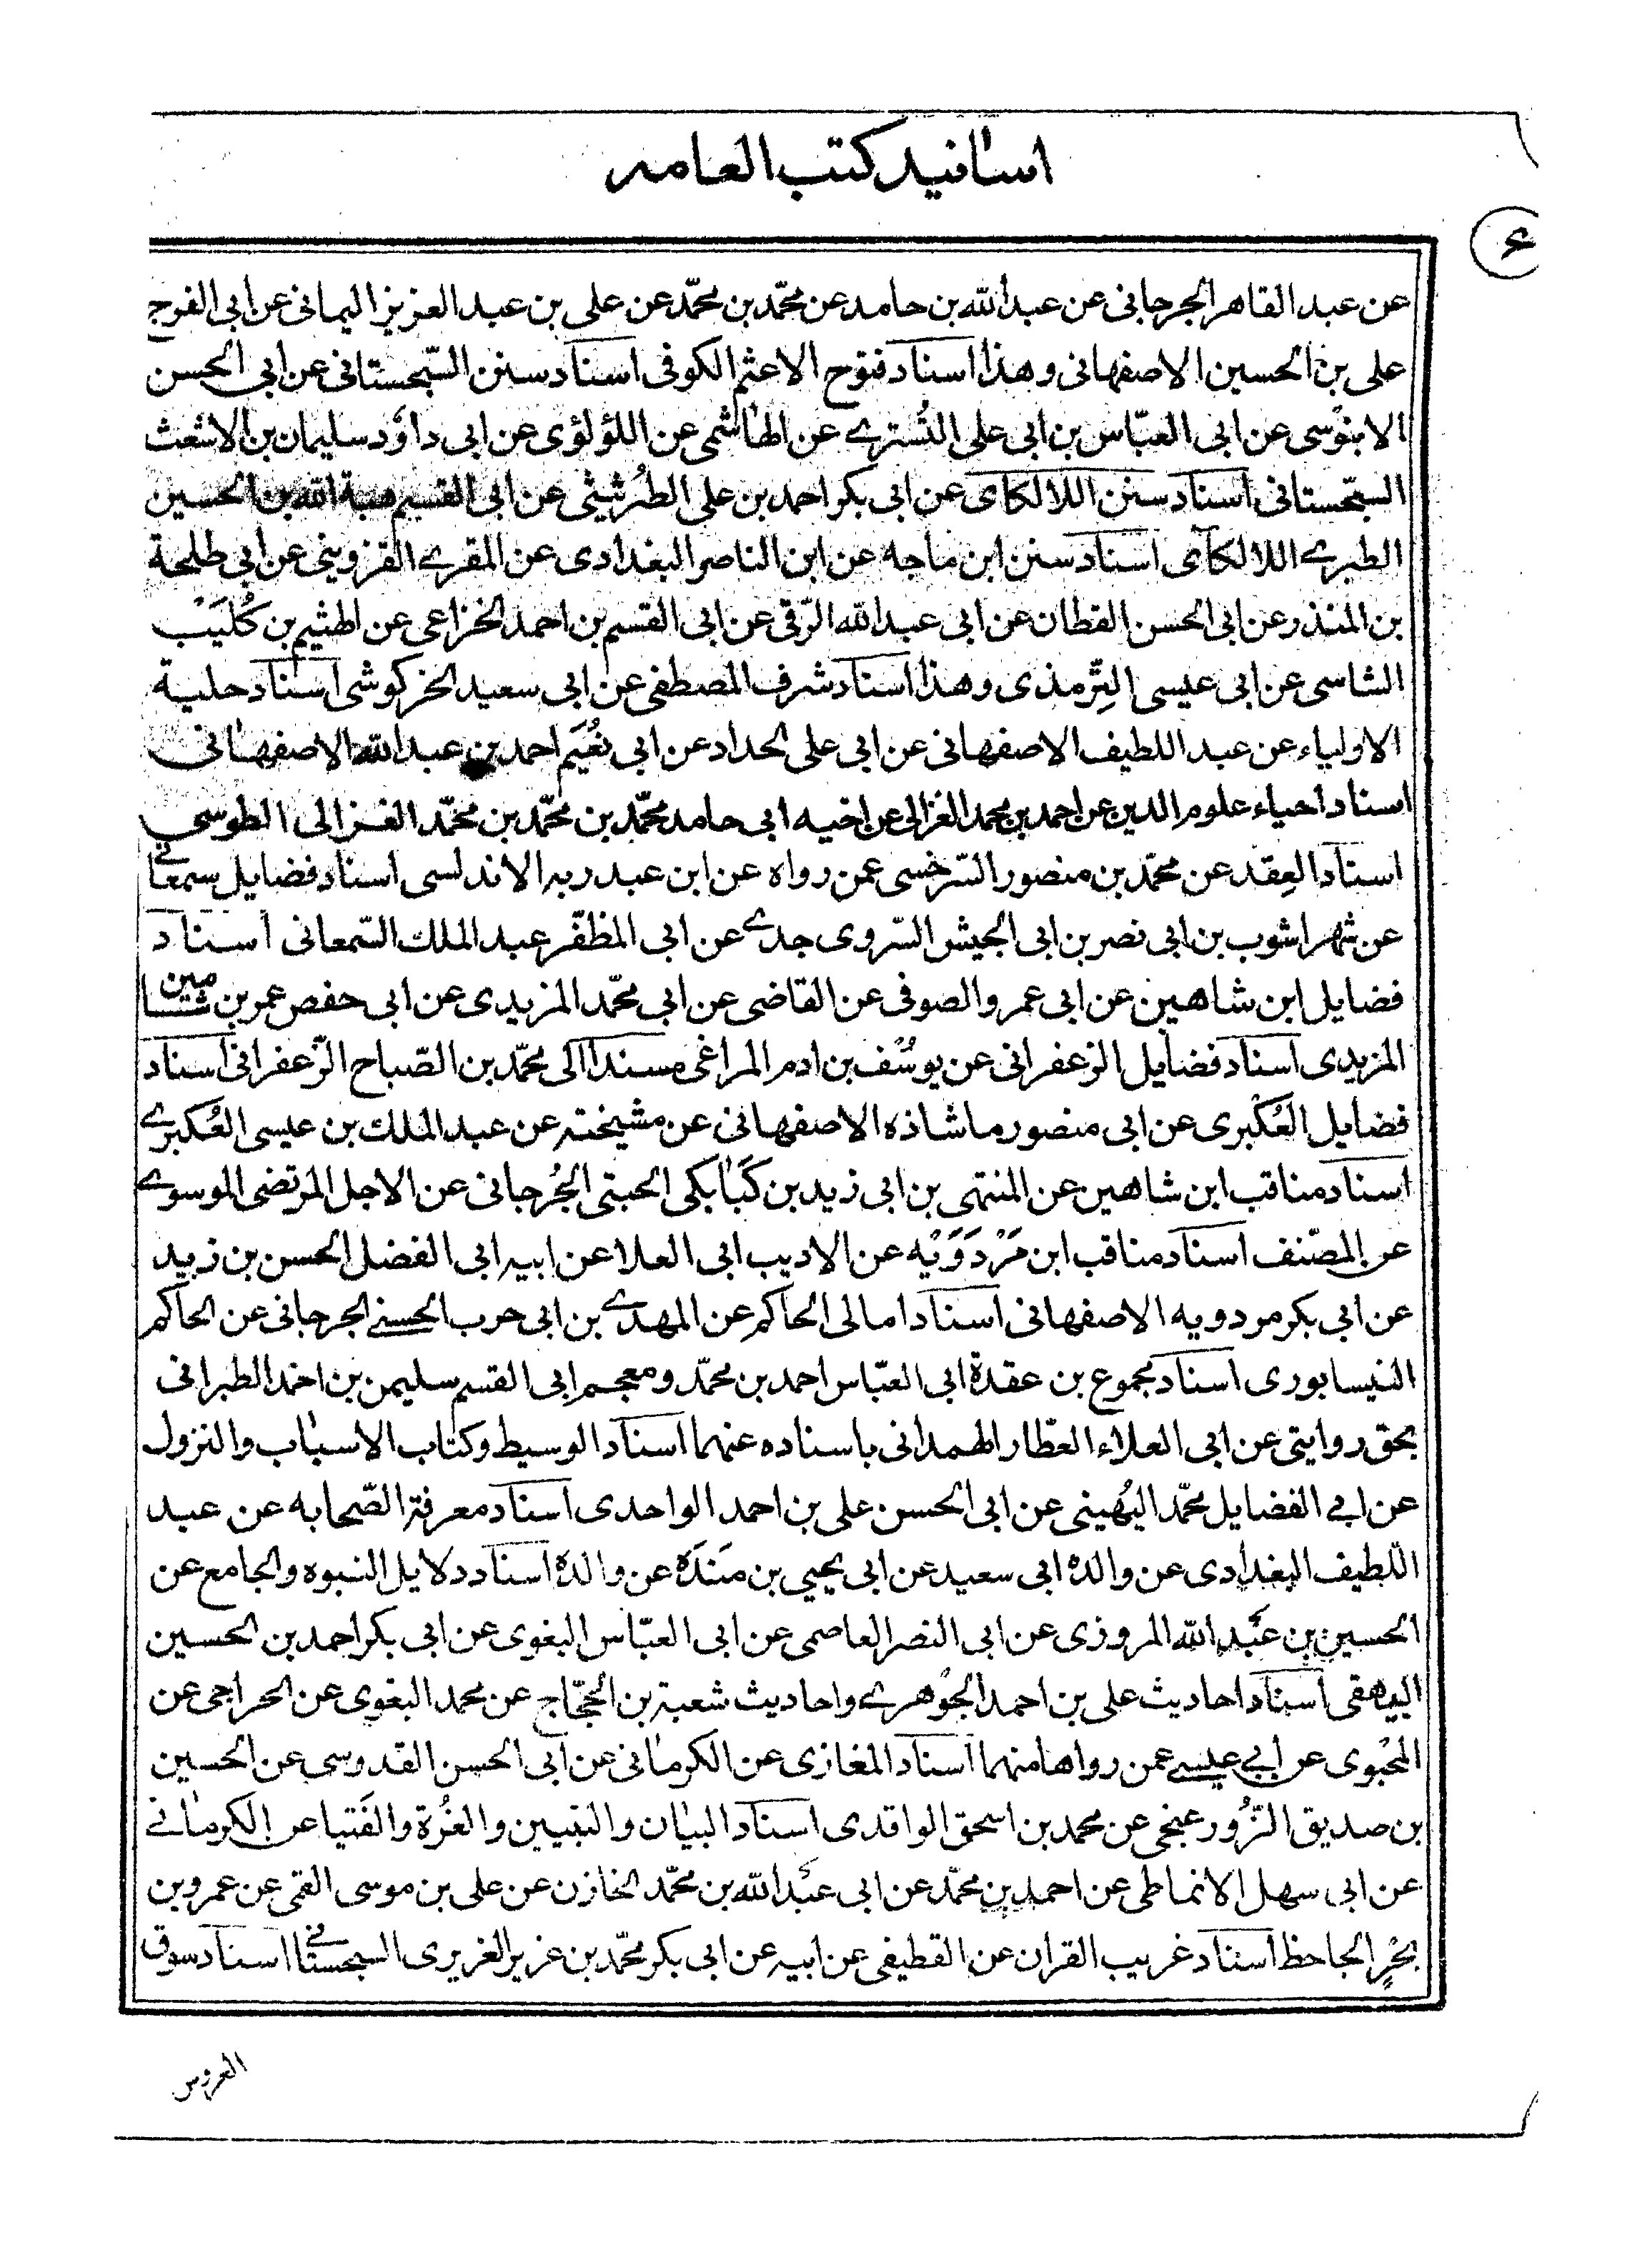 اسانيد كتب العامه
۶
عن عبد القاهر الجرجانى عن عبد الله بن حامد عن محمّد بن محمّد عن على بن عبد العزيز اليمانى عن ابى الفرج
على بن الحسين الاصفهانى وهذا اسناد فتوح الاعثم الكوفى اسناد سنن السّجستانى عن ابى الحسن
الابنوسى عن ابى العبّاس بن ابى على التُسترے عن الهاشمى عن اللؤلؤى عن ابى داؤد سليمان بن الاشعث
السجّستانى اسناد سنن اللالكاى عن ابى بكر احمد بن على الطُرثيثى عن ابى القسم هبة الله بن الحسين
الطبرے اللالكآى اسناد سنن ابن ماجه عن ابن الناصر البغدادى عن المقرے القزوينى عن ابى طلحة
بن المنذر عن ابى الحسن القطان عن ابى عبد الله الرّقى عن ابى القسم بن احمد الخزاعى عن الهثيم بن كُلَيْب
الشاسى عن ابى عيسى التِرّمذى وهذا اسناد شرف المصطفى عن ابى سعيد الخركوشى اسناد حلية
الاولياء عن عبد اللطيف الاصفهانى عن ابى على الحداد عن ابى نُعَيَم احمد بن عبد الله الاصفهانى
اسناد احياء علوم الدين عن احمد بن محمد الغزالى عن اخيه ابى حامد محمّد بن محمّد بن محمّد الغزالى الطوسى
اسناد العِقد عن محمّد بن منصور السّرخسى عمن رواه عن ابن عبد ربه الاندلسى اسناد فضايل سمعانے
عن شهراشوب بن ابى نصر بن ابى الجيش السّروى جدے عن ابى المظفّر عبد الملك السّمعانى اسناد
فضايل ابن شاهين عن ابى عمرو الصوفى عن القاضى عن ابى محمّد المزيدى عن ابى حفص عمر بن شاهين
المزيدى اسناد فضايل الزعفرانى عن يوسُف بن ادم المراغى مسندا الى محمّد بن الصّباح الزّعفرانى اسناد
فضايل العُكْبرى عن ابى منصور ماشاذه الاصفهانى عن مشيخته عن عبد الملك بن عيسى العُكبرے
اسناد مناقب ابن شاهين عن المنتهى بن ابى زيد بن كَبابكى الحبتى الجُرجانى عن الاجل المرتضى الموسوے
عن المصّنف اسناد مناقب ابن مَرْدَوَيْه عن الاديب ابى العلا عن ابيه ابى الفضل الحسن بن زيد
عن ابى بكر مردويه الاصفهانى اسناد امالى الحاكم عن المهدے بن ابى حرب الحسنے الجرجانى عن الحاكم
النيسابورى اسناد مجموع بن عقدة ابى العبّاس احمد بن محمّد ومعجم ابى القسم سليمن بن احمد الطبرانى
بحق روايتى عن ابى العلاء العطّار الهمدانى باسناده عنهما اسناد الوسيط وكتاب الاسباب والنزول
عن ابے الفضايل محمّد اليُهينى عن ابى الحسن على بن احمد الواحدى اسناد معرفة الصّحابه عن عبد
اللّطيف البغدادى عن والده ابى سعيد عن ابى يحيى بن مَندَة عن والدة اسناد دلايل النبوه والجامع عن
الحسين بن عَبد الله المروزى عن ابى النصر العاصمى عن ابى العبّاس البغوى عن ابى بكر احمد بن الحسين
البيهقى اسناد احاديث على بن احمد الجوهرے واحاديث شعبة بن الحجّاج عن محمد البغوى عن الحراجى عن
المحْبوى عن ابے عيسے عمن رواها منهما اسناد المغازى عن الكرمانى عن ابى الحسن القدوسى عن الحسين
بن صديق الزّورعنجى عن محمد بن اسحق الواقدى اسناد البيان والتبيين والغُرة والفَتيا عن الكرمانے
عن ابى سهل الانماطى عن احمد بن محمّد عن ابى عَبد الله بن محمّد الخازن عن على بن موسى القمى عن عمرو بن
بَحْرٍ الجاحظ اسناد غريب القران عن القطيفى عن ابيه عن ابى بكر محمّد بن عزيز الغريرى السجستانے اسناد سوق
العروس